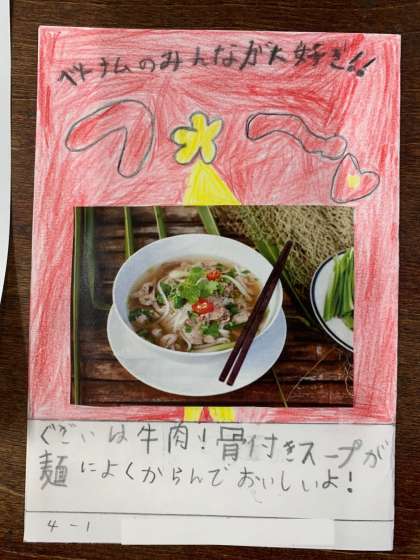 ベトナムのみんなが大好き!!
フォー
ぐざいは牛肉!骨付きスープが
麺によくからんでおいしいよ!
4-1